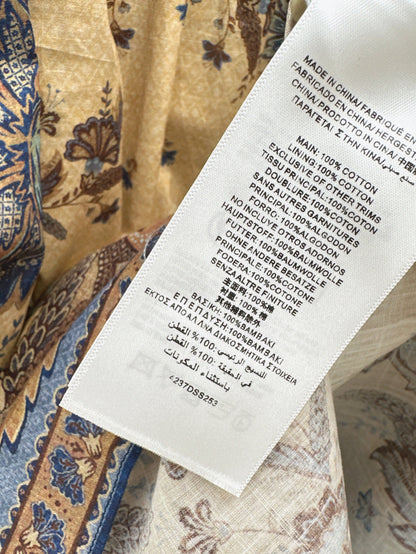 MADE IN CHINA/FABRIQUÉ EN
FABRICADO EN CHINA/HERGEST
CHINA/PRODOTTO IN CINA/中国
ΠΑΡΑΓΕΤΑΙ ΣΤΗΝ ΚΙΝΑ/
MAIN: 100% COTTON
LINING: 100% COTTON
EXCLUSIVE OF OTHER TRIMS
TISSU PRINCIPAL:100%COTON
DOUBLURE:100%COTON
SANS AUTRES GARNITURES
PRINCIPAL:100%ALGODON
FORRO:100%ALGODON
NO INCLUYE OTROS ADORNOS
HAUPTSTOFF:100%BAUMWOLLE
FUTTER:100%BAUMWOLLE
OHNE ANDERE BESATZE
PRINCIPALE:100%COTONE
FODERA:100%COTONE
SENZA ALTRE FINITURE
主面料: 100%棉
衬里: 100%棉
其他辅料除外
ΒΑΣΙΚΗ:100%ΒΑΜΒΑΚΙ
ΕΠΕΝΔΥΣΗ:100%ΒΑΜΒΑΚΙ
ΕΚΤΟΣ ΑΠΟ ΑΛΛΑ ΔΙΑΚΟΣΜΗΤΙΚΑ ΣΤΟΙΧΕΙΑ
النسيج الرئيسي: 100% القطن
في الحقيقة: 100% القطن
باستثناء المكونات
4237DSS253